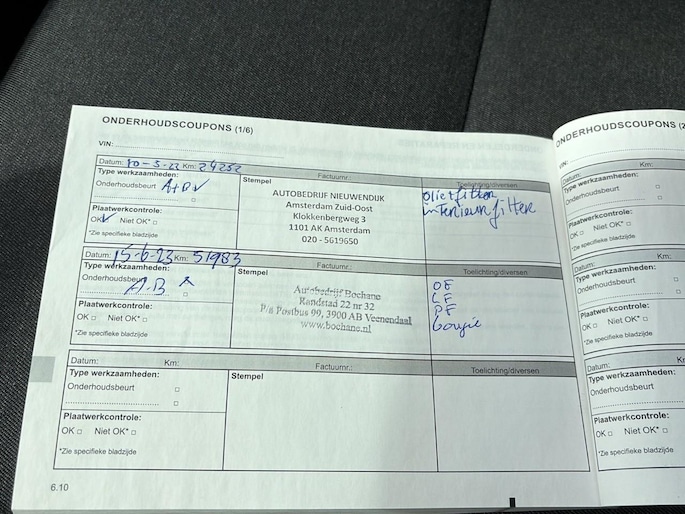 ONDERHOUDSCOUPONS (1/6)
VIN:
Datum: 10-5-22 Km: 24252
Factuurnr.:
Toelichting/diversen
Type werkzaamheden:
Onderhoudsbeurt A+B V
Plaatwerkcontrole:
OK V Niet OK*
*Zie specifieke bladzijde
Stempel
AUTOBEDRIJF NIEUWENDIJK
Amsterdam Zuid-Oost
Klokkenbergweg 3
1101 AK Amsterdam
020 - 5619650
olie+filter
interieurfilter
Datum: 15-6-23 Km: 51983
Factuurnr.:
Toelichting/diversen
Type werkzaamheden:
Onderhoudsbeurt
A.B X
Plaatwerkcontrole:
OK Niet OK*
*Zie specifieke bladzijde
Stempel
Autobedrijf Bochane
Randstad 22 nr 32
P/a Postbus 99, 3900 AB Veenendaal
www.bochane.nl
OF
LF
PF
bougie
Datum: Km:
Factuurnr.:
Toelichting/diversen
Type werkzaamheden:
Onderhoudsbeurt
Plaatwerkcontrole:
OK Niet OK*
*Zie specifieke bladzijde
Stempel
6.10
ONDERHOUDSCOUPONS (2
VIN:
Datum: Km:
Type werkzaamheden:
Onderhoudsbeurt
Plaatwerkcontrole:
OK Niet OK*
*Zie specifieke bladzijde
Datum: Km:
Type werkzaamheden:
Onderhoudsbeurt
Plaatwerkcontrole:
OK Niet OK*
*Zie specifieke bladzijde
Datum: Km:
Type werkzaamheden:
Onderhoudsbeurt
Plaatwerkcontrole:
OK Niet OK*
*Zie specifieke bladzijde